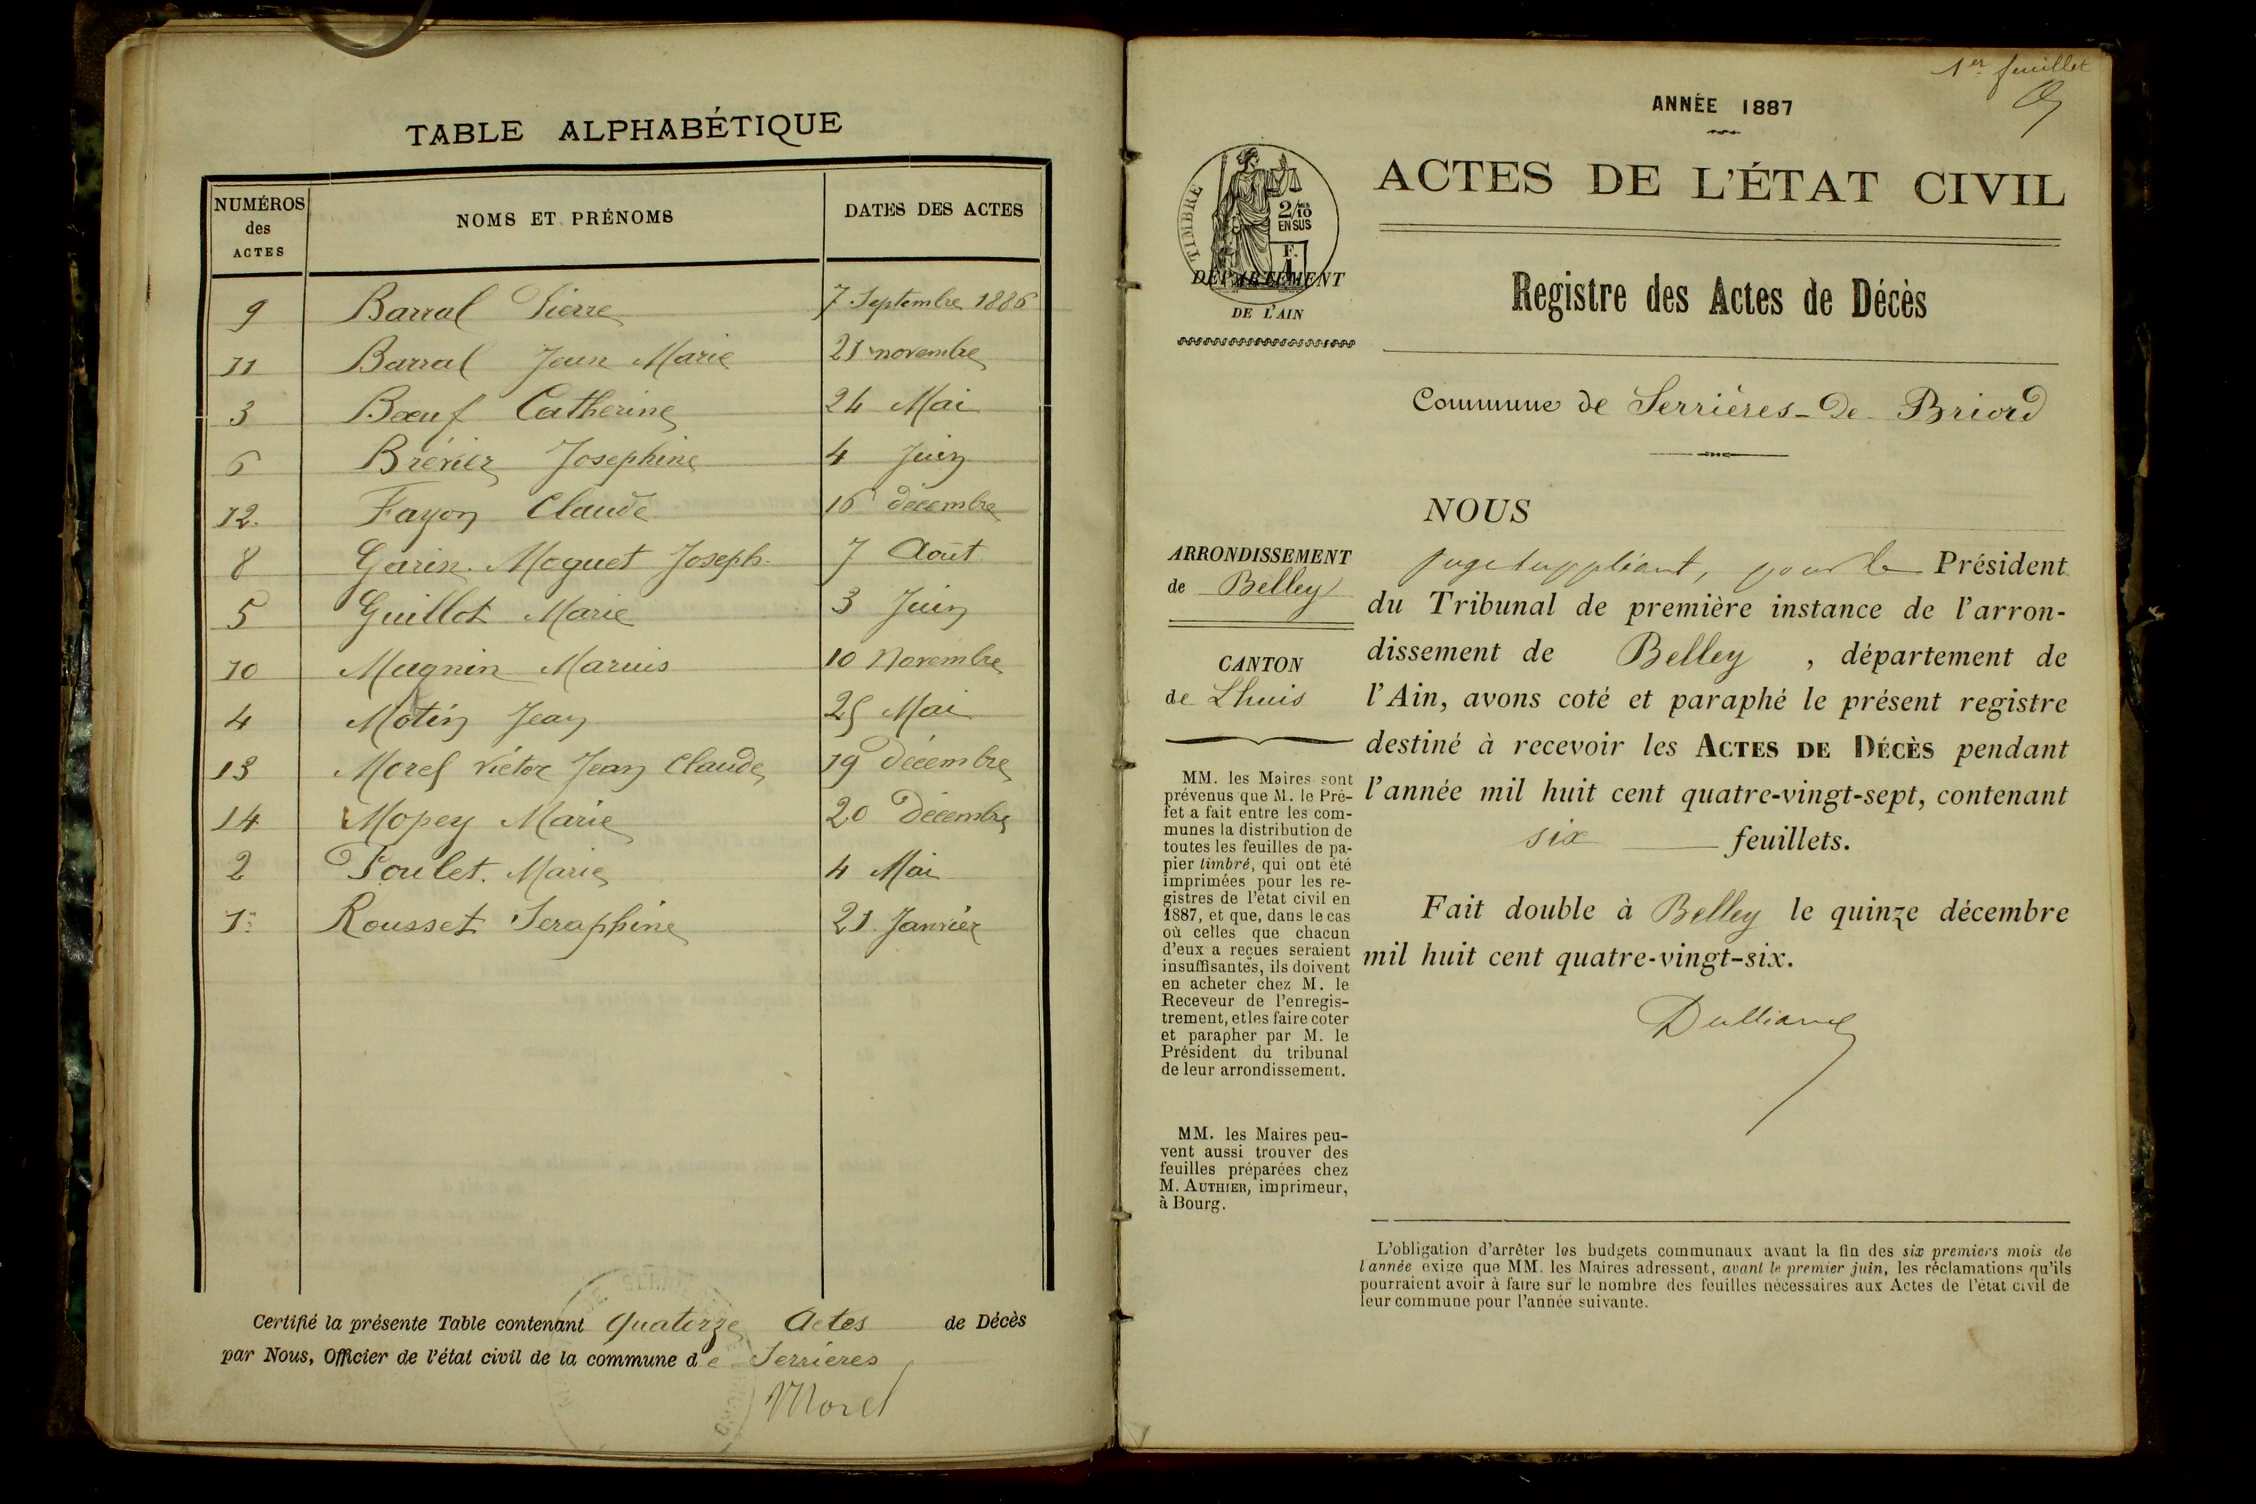 TABLE ALPHABÉTIQUE
NUMÉROS des ACTES
NOMS ET PRÉNOMS
DATES DES ACTES
9 Barral Pierre 7 Septembre 1886
11 Barral Jean Marie 21 novembre
3 Bœuf Catherine 24 Mai
6 Brévier Josephine 4 Juin
12. Fayon Claude 16 décembre
8 Garin-Moguet Joseph 7 Août
5 Guillot Marie 3 Juin
10 Magnin Marius 10 Novembre
4 Motin Jean 25 Mai
13 Morel Victor Jean Claude 19 Décembre
14 Mopey Marie 20 Décembre
2 Poulet Marie 4 Mai
1: Rousset Seraphine 21 Janvier
Certifié la présente Table contenant Quatorze Actes de Décès
par Nous, Officier de l'état civil de la commune de Serrieres
Morel
1er feuillet
ANNÉE 1887
TIMBRE
2/10 EN SUS
F. 1
DÉPARTEMENT
DE L'AIN
ACTES DE L'ÉTAT CIVIL
Registre des Actes de Décès
Commune de Serrières-de-Briord
ARRONDISSEMENT
de Belley
CANTON
de Lhuis
MM. les Maires sont
prévenus que M. le Pré-
fet a fait entre les com-
munes la distribution de
toutes les feuilles de pa-
pier timbré, qui ont été
imprimées pour les re-
gistres de l'état civil en
1887, et que, dans le cas
où celles que chacun
d'eux a reçues seraient
insuffisantes, ils doivent
en acheter chez M. le
Receveur de l'enregis-
trement, et les faire coter
et parapher par M. le
Président du tribunal
de leur arrondissement.
MM. les Maires peu-
vent aussi trouver des
feuilles préparées chez
M. AUTHIER, imprimeur,
à Bourg.
NOUS
juge suppléant, pour le Président
du Tribunal de première instance de l'arron-
dissement de Belley, département de
l'Ain, avons coté et paraphé le présent registre
destiné à recevoir les ACTES DE DÉCÈS pendant
l'année mil huit cent quatre-vingt-sept, contenant
six feuillets.
Fait double à Belley le quinze décembre
mil huit cent quatre-vingt-six.
L'obligation d'arrêter les budgets communaux avant la fin des six premiers mois de
l'année exige que MM. les Maires adressent, avant le premier juin, les réclamations qu'ils
pourraient avoir à faire sur le nombre des feuilles nécessaires aux Actes de l'état civil de
leur commune pour l'année suivante.